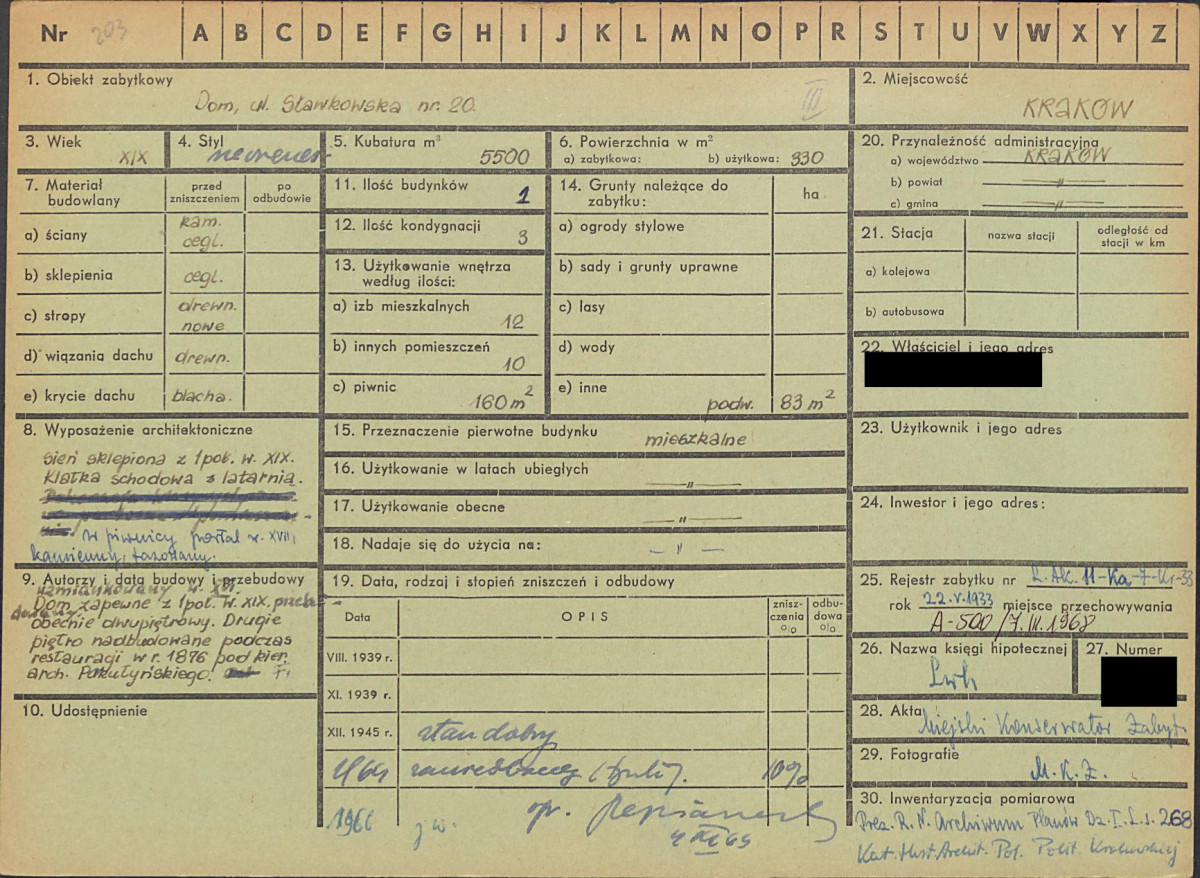 Nr 203 A B C D E F G H I J K L M N O P R S T U V W X Y Z
1. Obiekt zabytkowy
Dom, ul. Sławkowska nr. 20.
III
2. Miejscowość
KRAKÓW
3. Wiek
XIX
4. Styl
neorenes.
5. Kubatura m³
5500
6. Powierzchnia w m²
a) zabytkowa: b) użytkowa: 330
20. Przynależność administracyjna
a) województwo KRAKÓW
b) powiat —"—
c) gmina —"—
7. Materiał budowlany
przed zniszczeniem
po odbudowie
a) ściany kam. cegl.
b) sklepienia cegl.
c) stropy drewn. nowe
d) wiązania dachu drewn.
e) krycie dachu blacha.
11. Ilość budynków
1
12. Ilość kondygnacji
3
13. Użytkowanie wnętrza
według ilości:
a) izb mieszkalnych
12
b) innych pomieszczeń
10
c) piwnic
160 m²
14. Grunty należące do
zabytku:
ha
a) ogrody stylowe
b) sady i grunty uprawne
c) lasy
d) wody
e) inne
podw. 83 m²
21. Stacja
nazwa stacji
odległość od
stacji w km
a) kolejowa
b) autobusowa
22. Właściciel i jego adres
8. Wyposażenie architektoniczne
sień sklepiona z 1 poł. w. XIX.
Klatka schodowa z latarnią.
W piwnicy portal w. XVII,
kamienny, fazowany.
15. Przeznaczenie pierwotne budynku mieszkalne
16. Użytkowanie w latach ubiegłych —"—
17. Użytkowanie obecne —"—
18. Nadaje się do użycia na: —"—
23. Użytkownik i jego adres
24. Inwestor i jego adres:
9. Autorzy i data budowy i przebudowy
wzmiankowany w. XVI.
Dom zapewne z 1 poł. w. XIX. przebu-
dowany.
obecnie dwupiętrowy. Drugie
piętro nadbudowane podczas
restauracji w r. 1876 pod kier.
arch. Pokutyńskiego.
10. Udostępnienie
19. Data, rodzaj i stopień zniszczeń i odbudowy
Data
OPIS
znisz-
czenia
%
odbu-
dowa
%
VIII. 1939 r.
XI. 1939 r.
XII. 1945 r. stan dobry
1964
10%
1966 j. w.
opr.
4 XII 64
25. Rejestr zabytku nr L. AK. 11-Ka-7-Kr-33
rok 22.V.1933 miejsce przechowywania
A-500/7.III.1968
26. Nazwa księgi hipotecznej
Lwh
27. Numer
28. Akta
Miejski Konserwator Zabyt.
29. Fotografie
M.K.Z.
30. Inwentaryzacja pomiarowa
Prez. R. N. Archiwum Planów Dz. I. L. s. 268
Kat. Hist. Archit. Pol. Polit. Krakowskiej